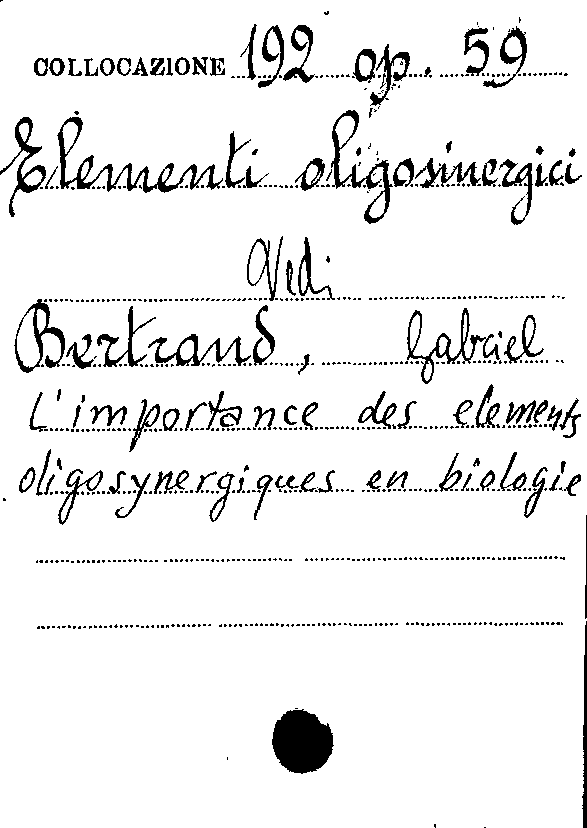 COLLOCAZIONE 192 op. 59
Elementi oligosinergici
Vedi
Bertrand, Gabriel
L'importance des elements
oligosynergiques en biologie